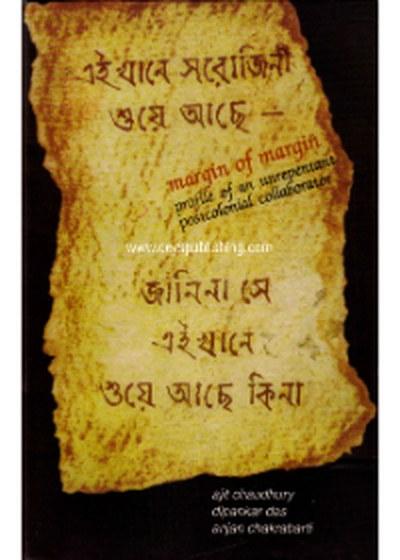 এইখানে সরোজিনী
শুয়ে আছে –
margin of margin
profile of an unrepentant
postcolonial collaborator
জানিনা সে
এইখানে
শুয়ে আছে কিনা
ajit chaudhury
dipankar das
anjan chakrabarti